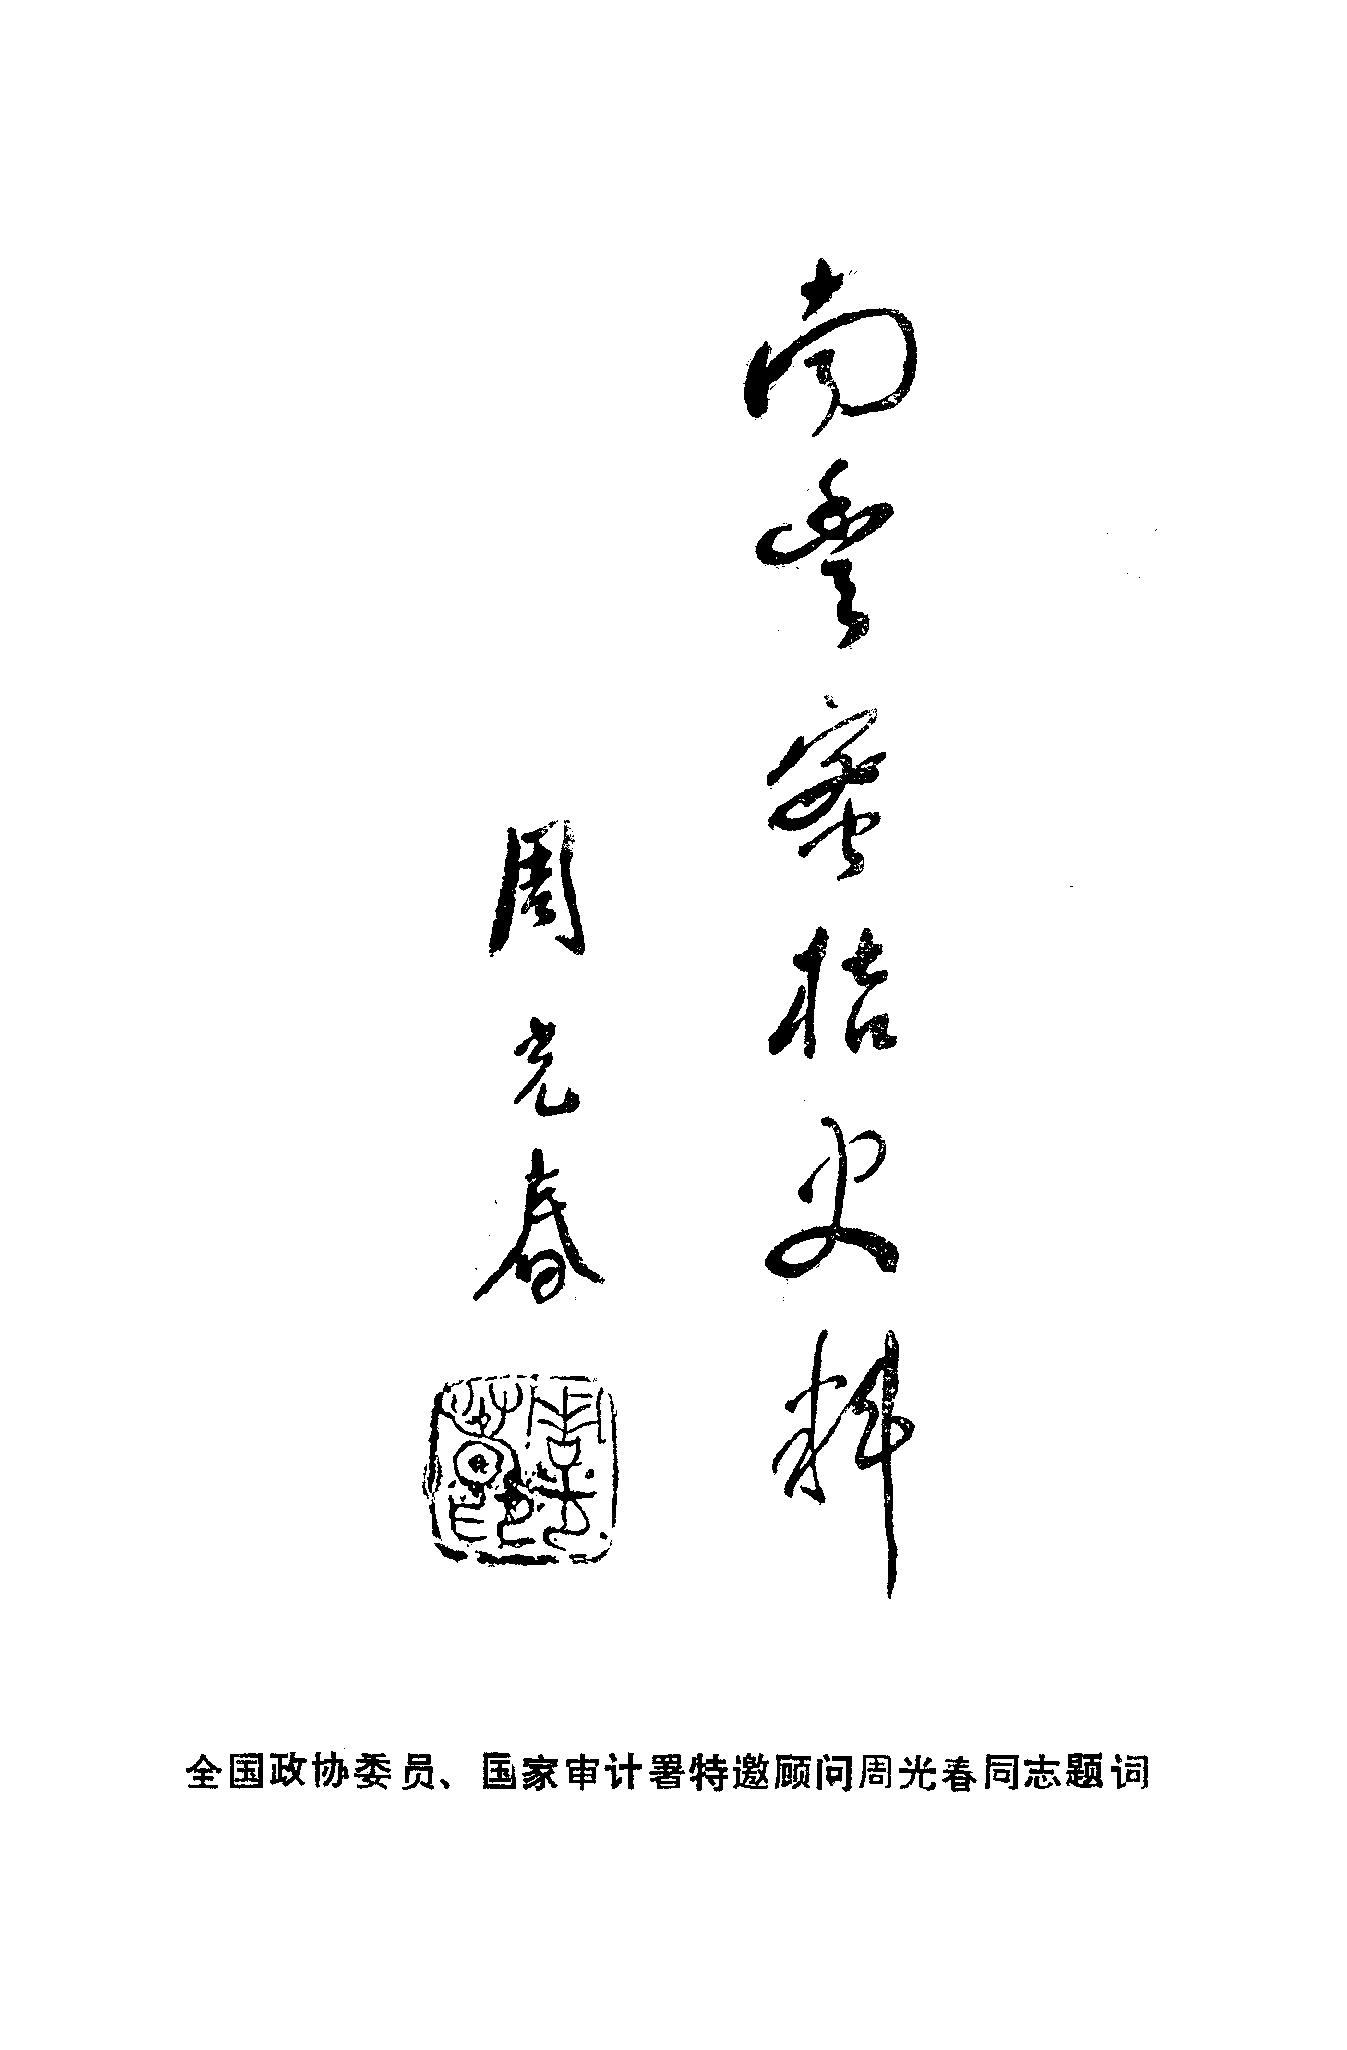 南豐蜜桔史料
周光春
全国政协委员、国家审计署特邀顾问周光春同志题词